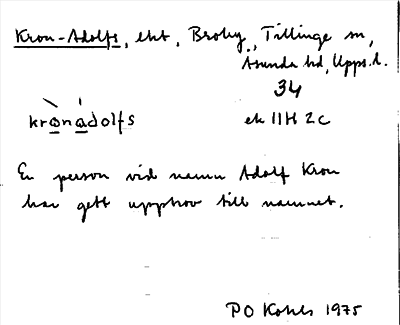 Kron-Adolfs, eht, Broby, Tillinge sn,
Åsunda hd, Upps.l.
34
krọnạdolfs ek 11H 2c
En person vid namn Adolf Kron
har gett upphov till namnet.
PO Kohls 1975